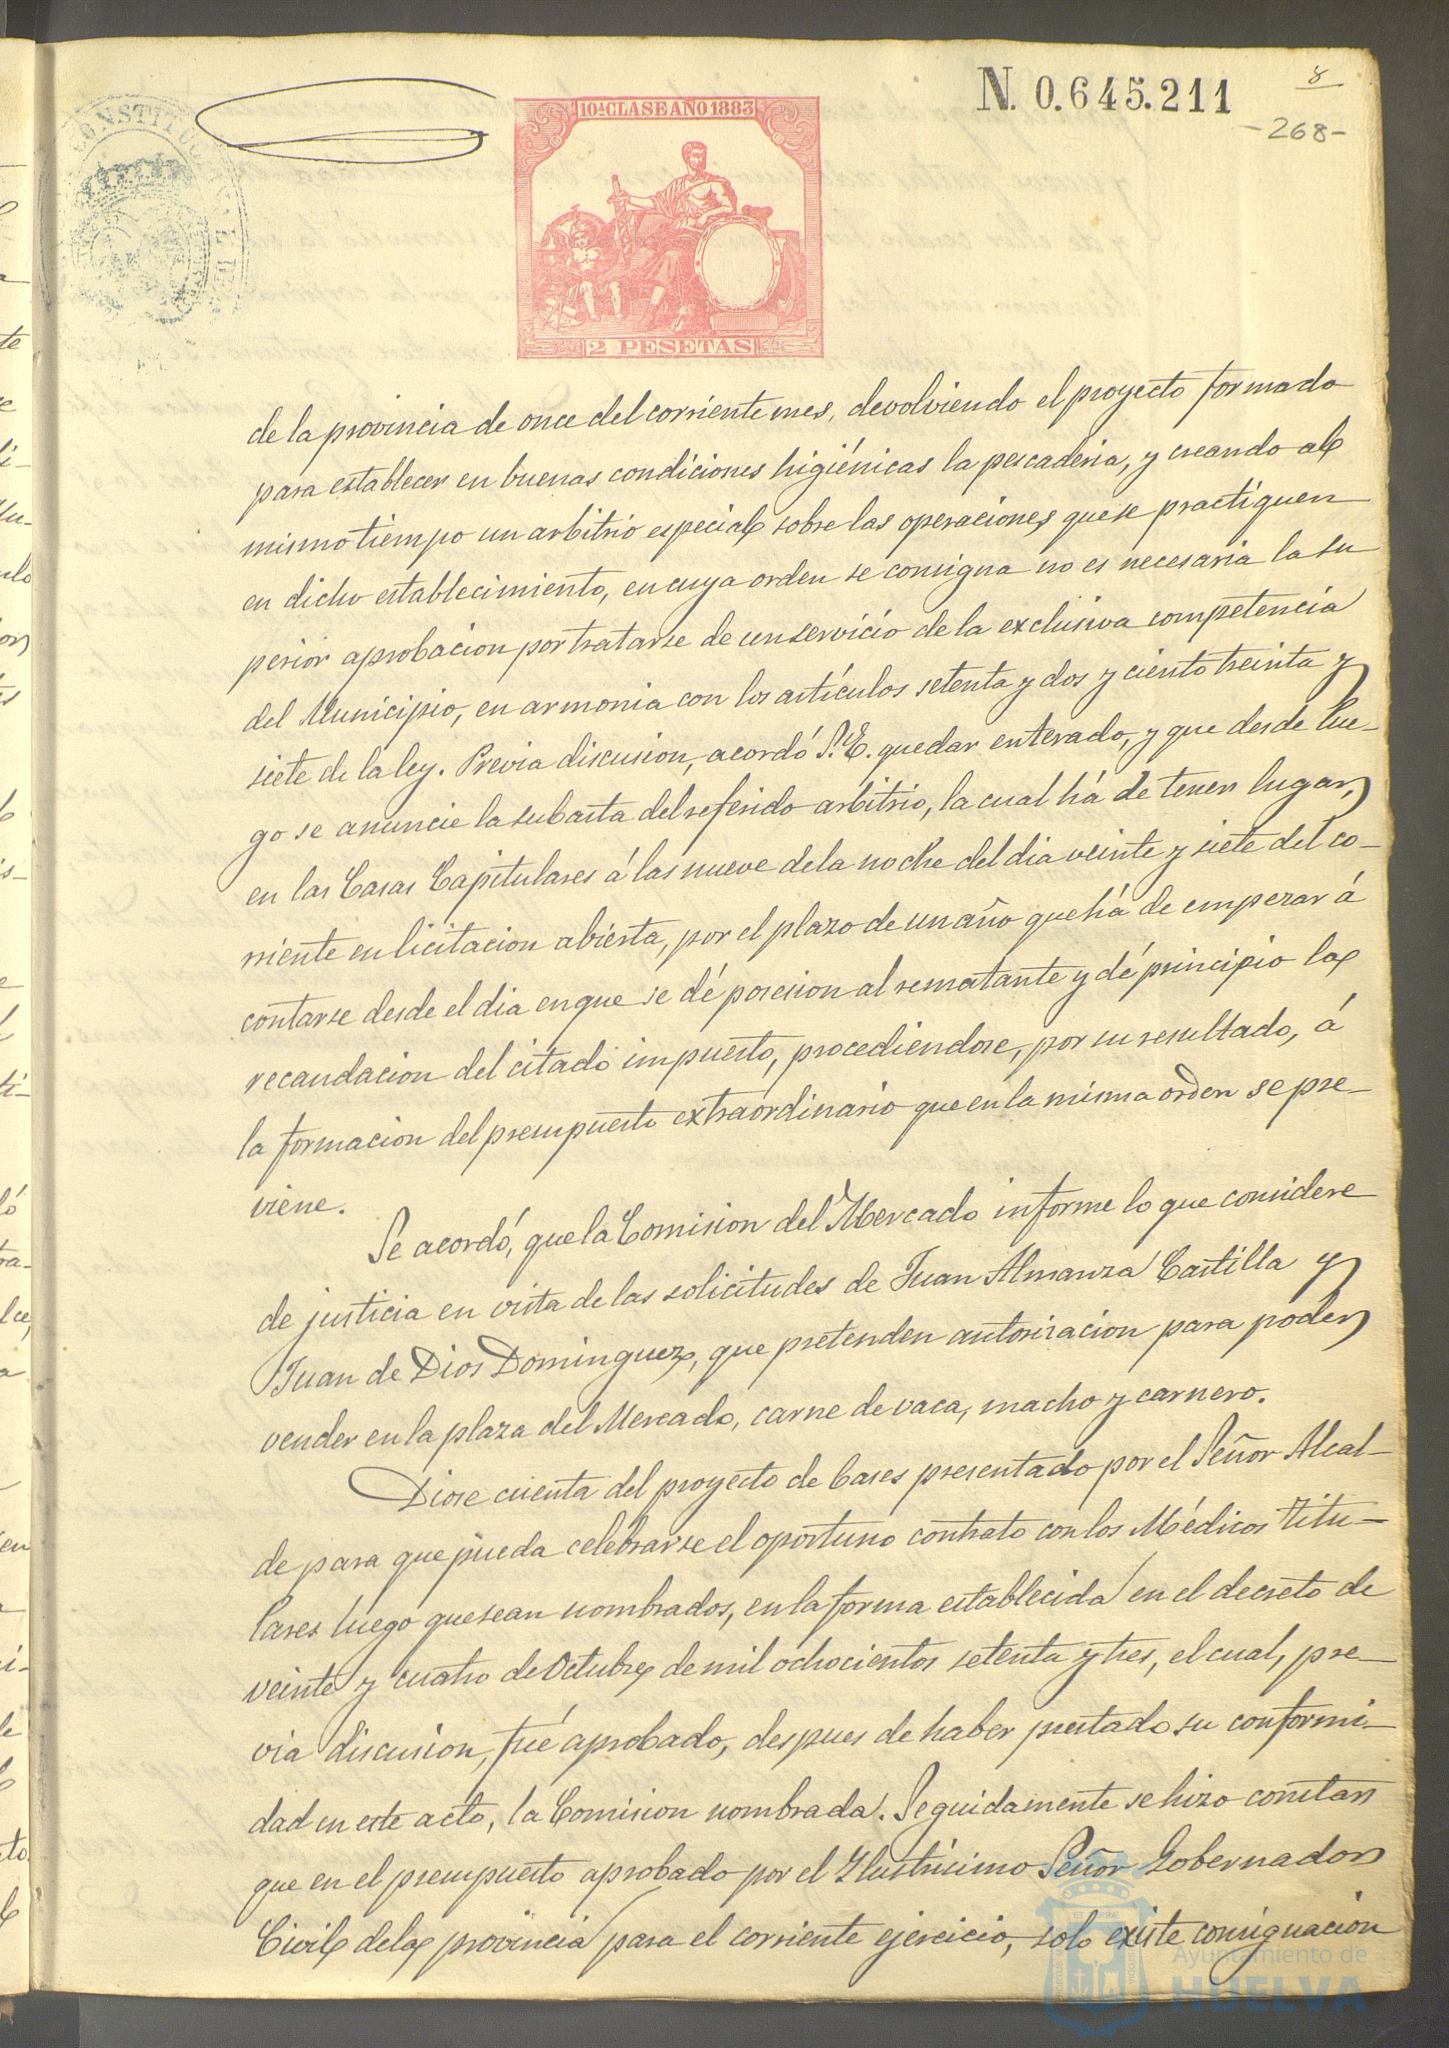 N. 0.645.211
8
-268-
10ª CLASE AÑO 1883
2 PESETAS
de la provincia de once del corriente mes, devolviendo el proyecto formado
para establecer en buenas condiciones higiénicas la pescaderia, y creando al
mismo tiempo un arbitrio especial sobre las operaciones que se practiquen
en dicho establecimiento, en cuya orden se consigna no es necesaria la su
perior aprobacion por tratarse de un servicio de la exclusiva competencia
del Municipio, en armonia con los artículos setenta y dos y ciento treinta y
siete de la ley. Previa discusion, acordó S.E. quedar enterado, y que desde lue-
go se anuncie la subasta del referido arbitrio, la cual há de tener lugar,
en las Casas Capitulares á las nueve de la noche del dia veinte y siete del co-
rriente en licitacion abierta, por el plazo de un año que há de empezar á
contarse desde el dia en que se dé posesion al rematante y dé principio la
recaudacion del citado impuesto, procediendose, por su resultado, á
la formacion del presupuesto extraordinario que en la misma orden se pre-
viene.
Se acordó, que la Comision del Mercado informe lo que considere
de justicia en vista de las solicitudes de Juan Almanza Castilla y
Juan de Dios Dominguez, que pretenden autorizacion para poder
vender en la plaza del Mercado, carne de vaca, macho y carnero.
Diose cuenta del proyecto de bases presentado por el Señor Alcal-
de para que pueda celebrarse el oportuno contrato con los Médicos titu-
lares luego que sean nombrados, en la forma establecida en el decreto de
veinte y cuatro de Octubre de mil ochocientos setenta y tres, el cual, pre-
via discusion, fué aprobado, despues de haber prestado su conformi-
dad en este acto, la Comision nombrada. Seguidamente se hizo constar
que en el presupuesto aprobado por el Ilustrisimo Señor Gobernador
Civil de la provincia para el corriente ejercicio, solo existe consignacion
Ayuntamiento de
HUELVA